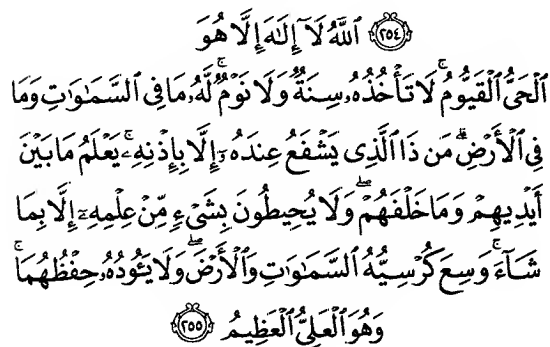 ﴿٢٥٤﴾ ٱللَّهُ لَآ إِلَٰهَ إِلَّا هُوَ
ٱلْحَىُّ ٱلْقَيُّومُ ۚ لَا تَأْخُذُهُۥ سِنَةٌ وَلَا نَوْمٌ ۚ لَّهُۥ مَا فِى ٱلسَّمَٰوَٰتِ وَمَا
فِى ٱلْأَرْضِ ۗ مَن ذَا ٱلَّذِى يَشْفَعُ عِندَهُۥٓ إِلَّا بِإِذْنِهِۦ ۚ يَعْلَمُ مَا بَيْنَ
أَيْدِيهِمْ وَمَا خَلْفَهُمْ ۖ وَلَا يُحِيطُونَ بِشَىْءٍ مِّنْ عِلْمِهِۦٓ إِلَّا بِمَا
شَآءَ ۚ وَسِعَ كُرْسِيُّهُ ٱلسَّمَٰوَٰتِ وَٱلْأَرْضَ ۖ وَلَا يَـُٔودُهُۥ حِفْظُهُمَا ۚ
وَهُوَ ٱلْعَلِىُّ ٱلْعَظِيمُ ﴿٢٥٥﴾